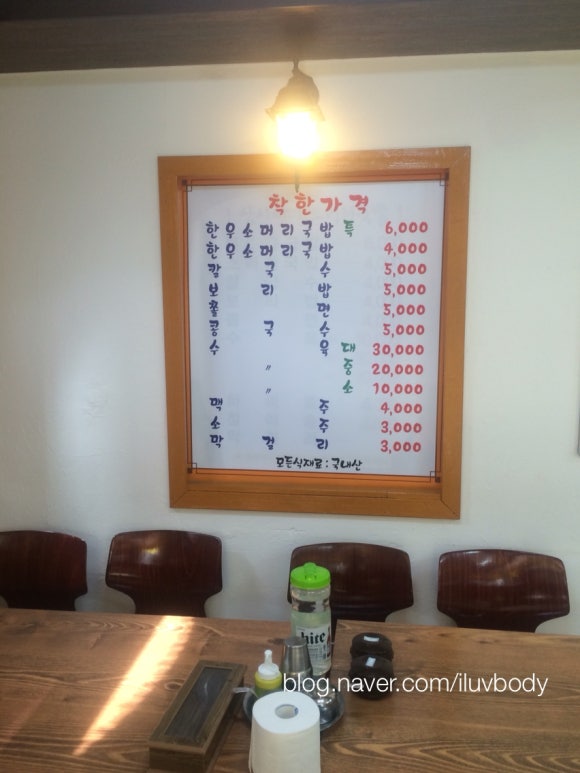 착한가격
한우소머리국밥 특 6,000
한우소머리국밥 4,000
칼국수 5,000
보리밥 5,000
쫄면 5,000
콩국수 5,000
수육 대 30,000
〃 중 20,000
〃 소 10,000
맥주 4,000
소주 3,000
막걸리 3,000
모든식재료 : 국내산
hite
blog.naver.com/iluvbody